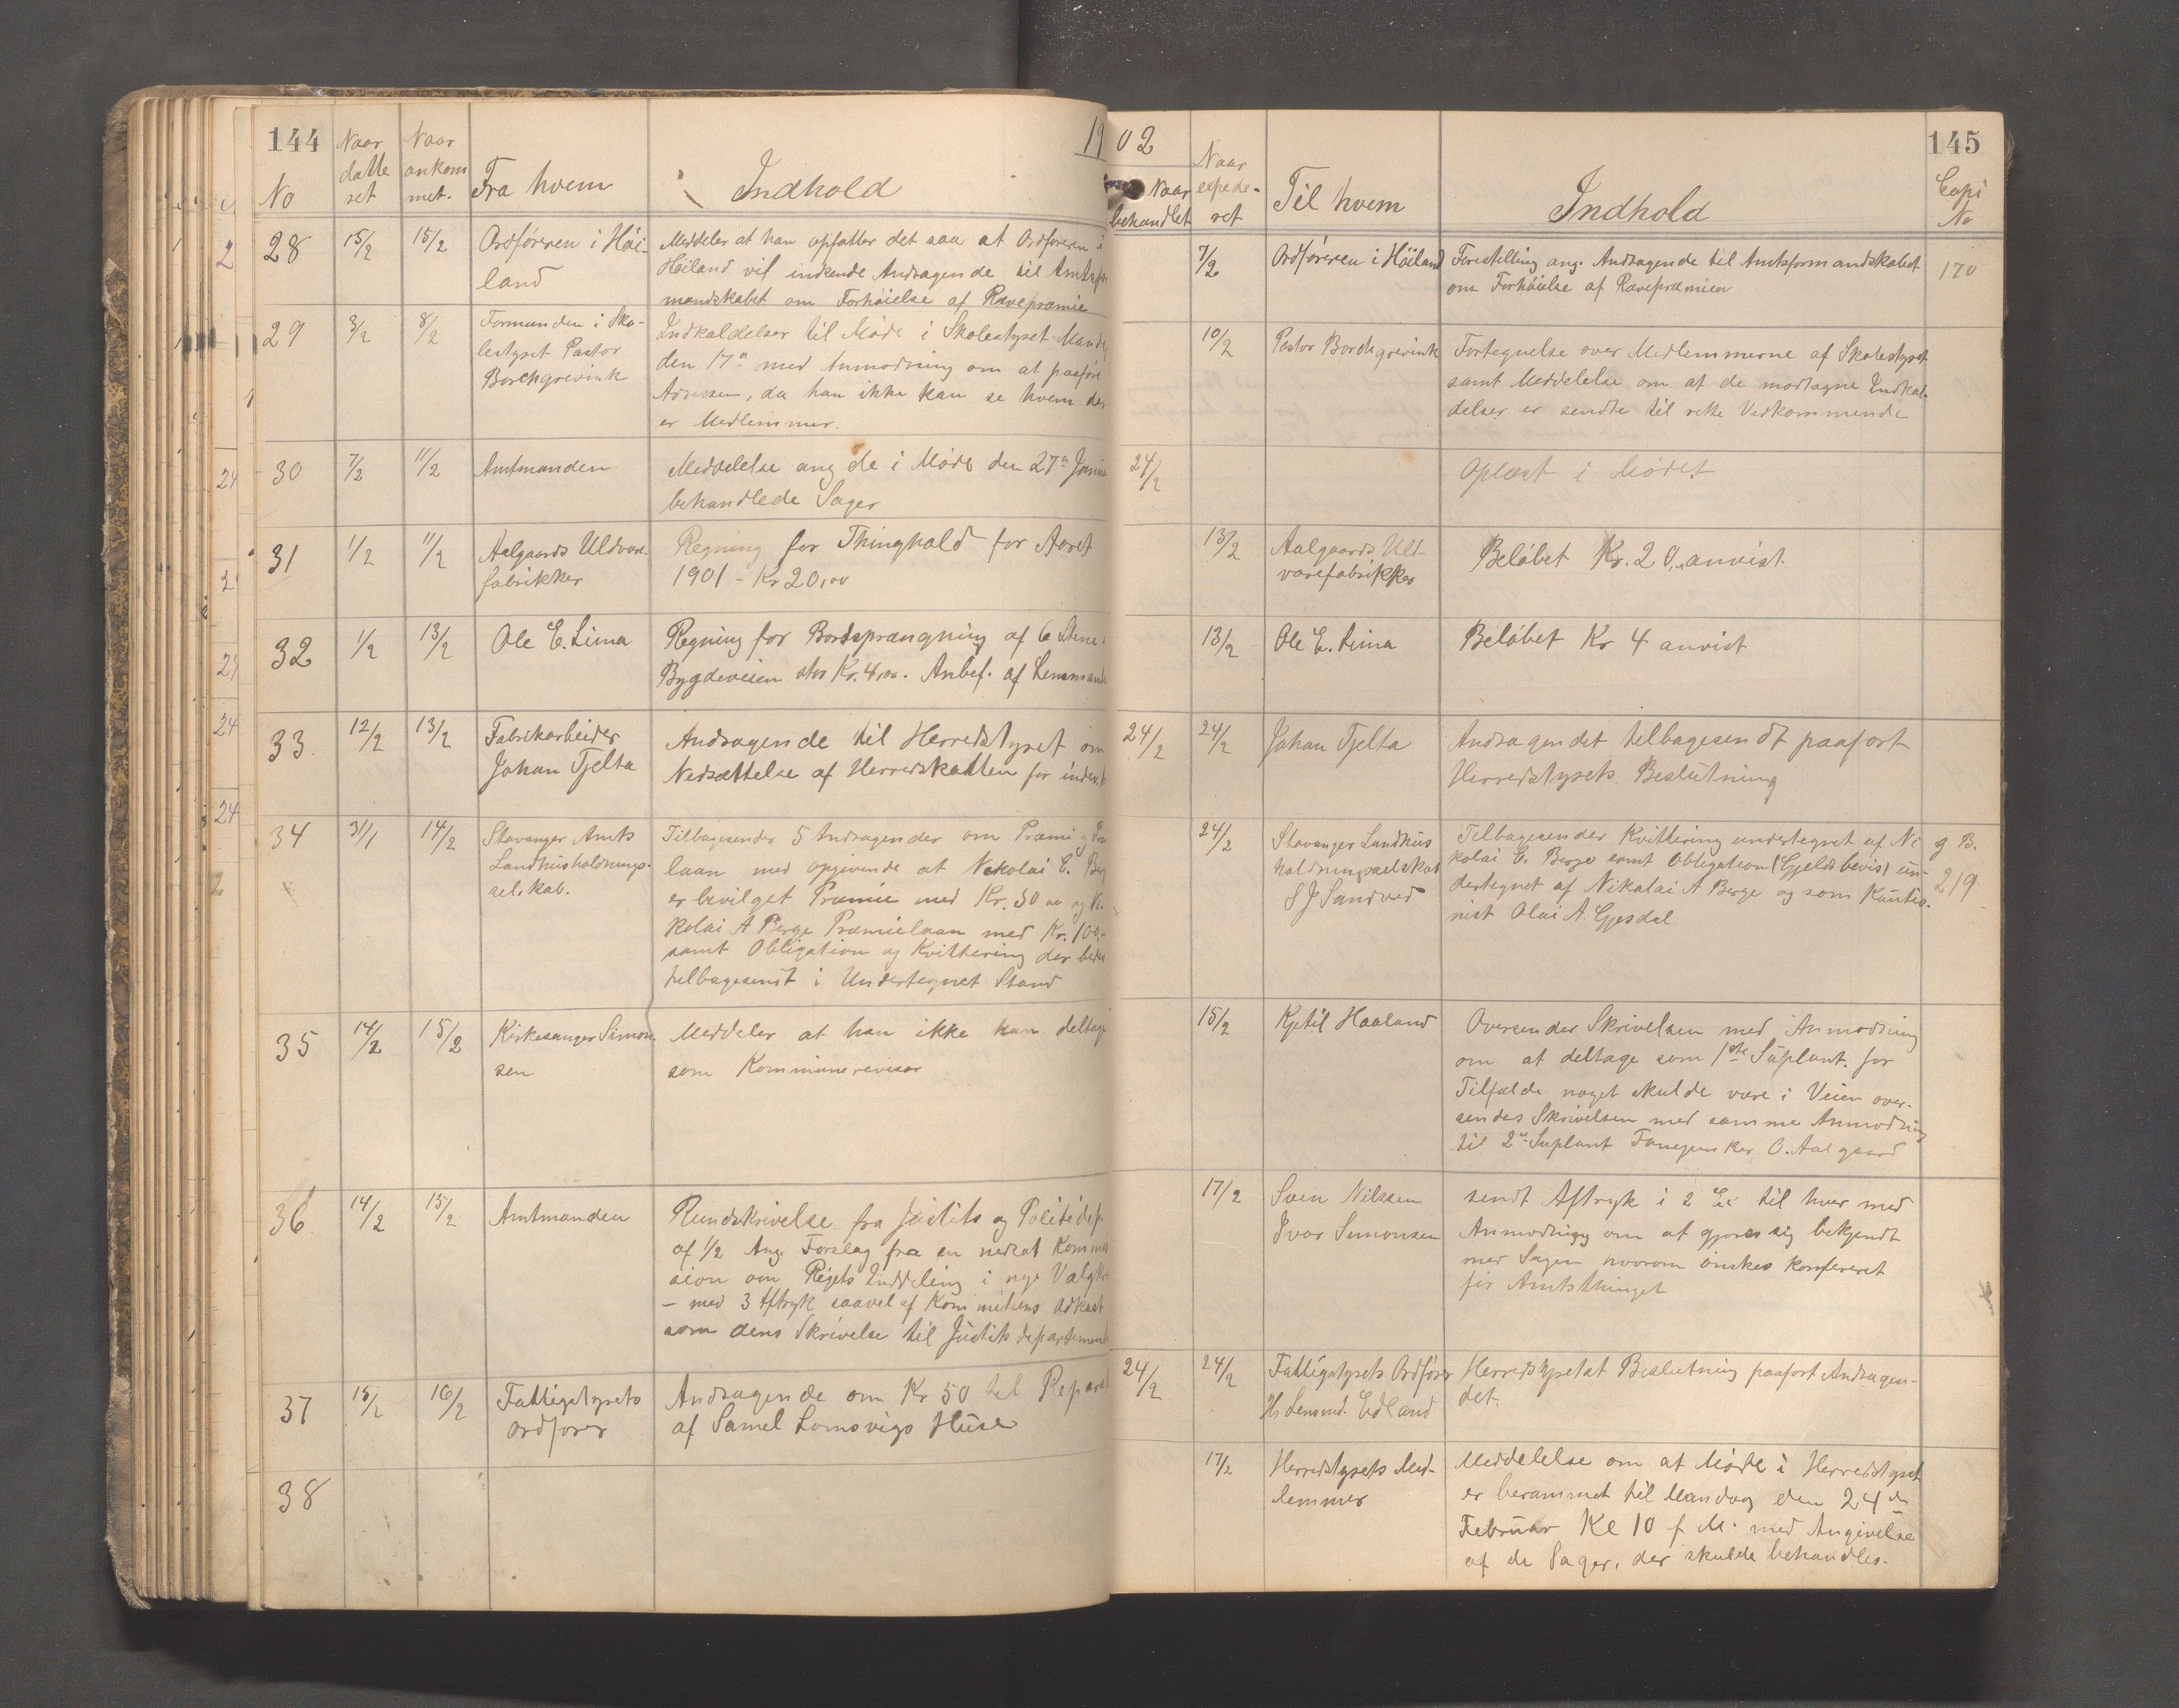 144
19
No
Naar
datte
ret
Naar
ankom
met.
Fra hvem
Indhold
28
15/2
15/2
Ordføreren i Høi-
land
Meddeler at han opfatter det saa at Ordføreren i
Høiland vil indsende Andragende til Amtsfor
mandskabet om Forhøielse af Rævepræmie
29
3/2
8/2
Formanden i Sko-
lestyret Pastor
Borchgrevink
Indkaldelser til Møde i Skolestyret Mandag
den 17de med Anmodning om at paaføre
Adressen, da han ikke kan se hvem der
er Medlemmer.
30
7/2
11/2
Amtmanden
Meddelelse ang de i Møde den 27de Januar
behandlede Sager
31
1/2
11/2
Aalgaards Uldvare-
fabrikker
Regning for Thinghold for Aaret
1901 - Kr 20,00
32
1/2
13/2
Ole E. Lima
Regning for Bortsprængning af 6 Stene i
Bygdeveien stor Kr. 4,00. Anbef. af Lensmand
33
12/2
13/2
Fabrikarbeider
Johan Tjelta
Andragende til Herredstyret om
Nedsættelse af Herredskatten for indev.
34
31/1
14/2
Stavanger Amts
Landhusholdnings-
selskab.
Tilbagesender 5 Andragender om Præmi og Præ
laan med opgivende at Nikolai E. Berg
er bevilget Præmie med Kr. 50 00 og Ni-
kolai A Berge Præmielaan med Kr. 100,-
samt Obligation og Kvittering der bedes
tilbagesendt i Undertegnet Stand
35
14/2
15/2
Kirkesanger Simon
sen
Meddeler at han ikke kan deltage
som Kommunerevisor
36
14/2
15/2
Amtmanden
Rundskrivelse fra Justits og Politidep.
af 1/2 Ang. Forslag fra en nedsat Kommis
sion om Rigets Inddeling i nye Valgkr
- med 3 Aftryk saavel af Kommiteens Udkast
som dens Skrivelse til Justits departement
37
15/2
16/2
Fattigstyrets
Ordfører
Andragende om Kr 50 til Reparat
af Samel Lomsvigs Huse
38
02
145
Naar
behandlet
Naar
expede-
ret
Til hvem
Indhold
Copi
No
7/2
Ordføreren i Høiland
Forestilling ang. Andragende til Amtsformandskabet
om Forhøielse af Rævepræmien
170
10/2
Pastor Borchgrevink
Fortegnelse over Medlemmerne af Skolestyret
samt Meddelelse om at de modtagne Indkal-
delser er sendte til rette Vedkommende
24/2
Oplæst i Mødet
13/2
Aalgaards Uld-
varefabrikker
Beløbet Kr. 20,- anvist.
13/2
Ole E. Lima
Beløbet Kr 4 anvist
24/2
24/2
Johan Tjelta
Andragendet tilbagesendt paaført
Herredstyrets Beslutning
24/2
Stavanger Landhus
holdningsselskab
S J Sandved
Tilbagesender Kvittering undertegnet af Ni
kolai E. Berge samt Obligation (Gjeldsbevis) un-
dertegnet af Nikolai A Berge og som Kautio-
nist Olai A. Gjesdal
g B.
219
15/2
Kjetil Haaland
Oversender Skrivelsen med Anmodning
om at deltage som 1ste Suplant. for
Tilfælde noget skulde være i Veien over-
sendes Skrivelsen med samme Anmodning
til 2den Suplant Fanejunker O. Aalgaard
17/2
Sven Nilssen
Ivar Simonsen
sendt Aftryk i 2 Ex til hver med
Anmodning om at gjøre sig bekjendt
med Sagen hvorom ønskes konfereret
før Amtsthinget
24/2
24/2
Fattigstyrets Ordfører
Hr Lensmd. Edland
Herredstyrets Beslutning paaført Andragen-
det.
17/2
Herredstyrets Med-
lemmer
Meddelelse om at Møde i Herredstyret
er berammet til Mandag den 24de
Februar Kl 10 f M. med Angivelse
af de Sager, der skulde behandles.